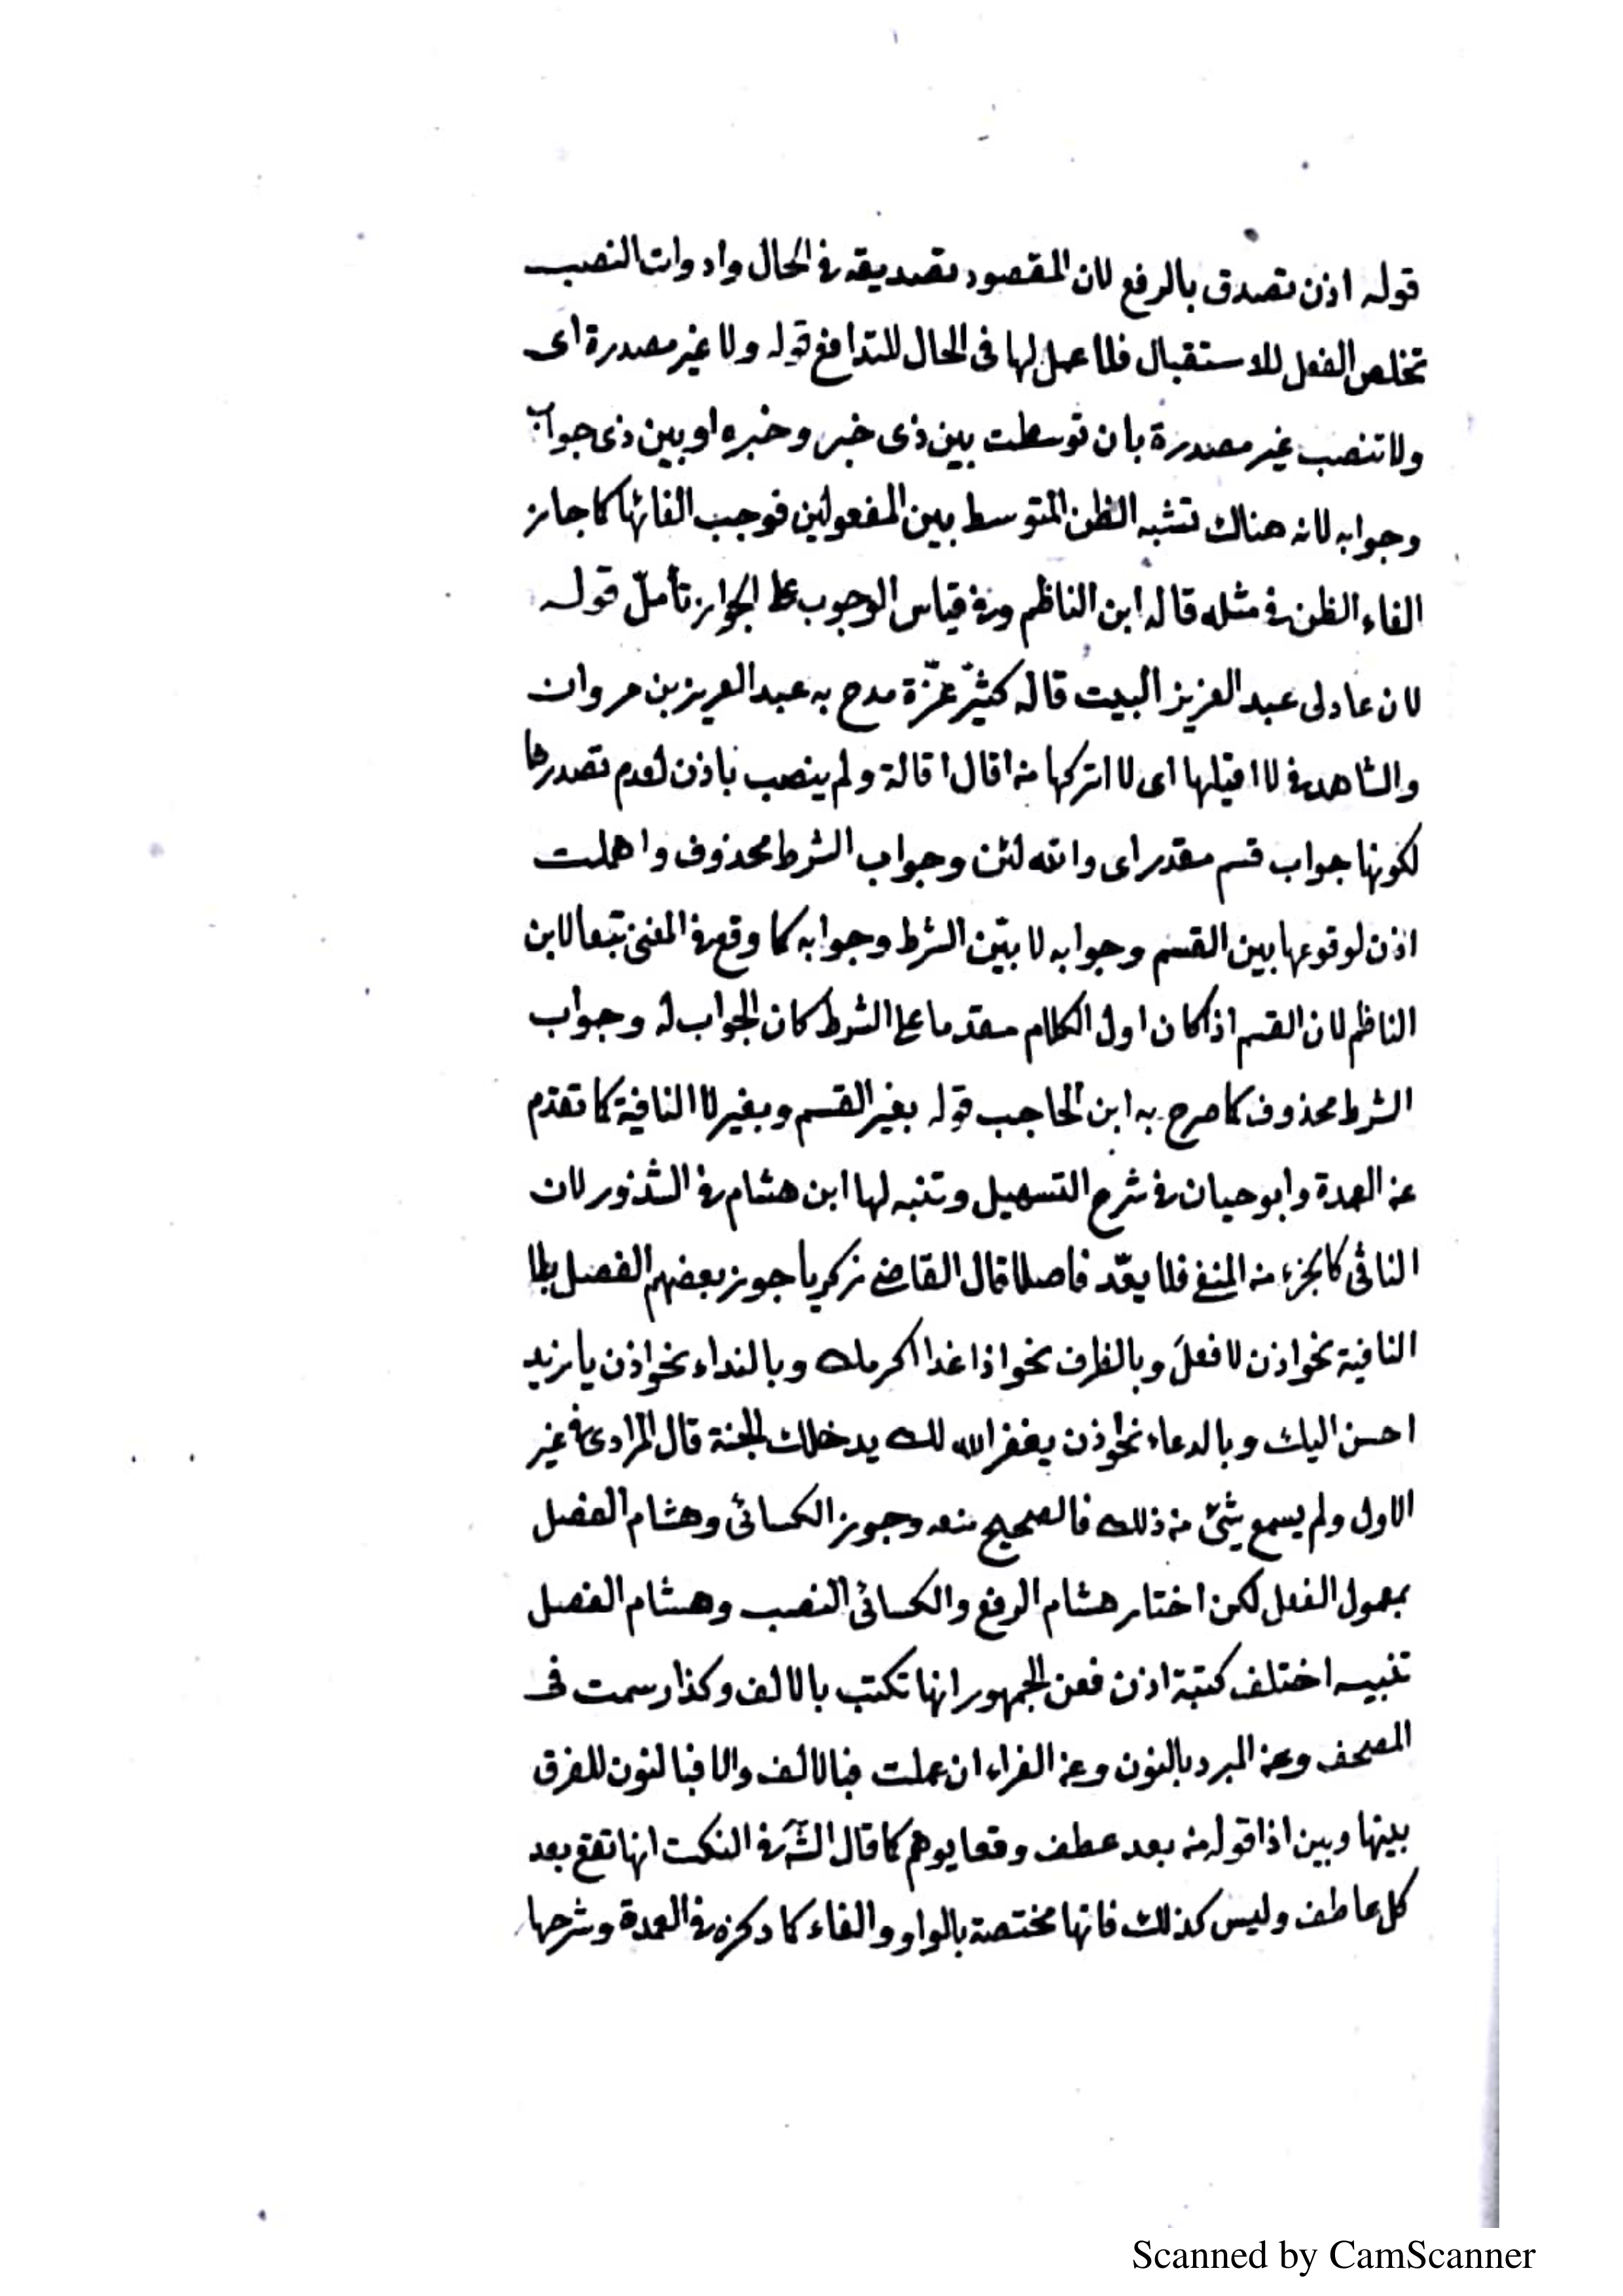 قوله اذن تصدق بالرفع لان المقصود تصديقه في الحال وادوات النصب
تخلص الفعل للاستقبال فلا عمل لها فى الحال للتدافع قوله ولا غير مصدرة اى
ولا تنصب غير مصدرة بان توسطت بين ذى خبر وخبره او بين ذى جواب
وجوابه لانه هناك تشبه الظن المتوسط بين المفعولين فوجب الفائها كما جاز
الفاء الظن في مثله قاله ابن الناظم وفي قياس الوجوب على الجواز تأملّ قوله
لان عادلى عبد العزيز البيت قاله كثيّر عزّة مدح به عبد العزيز بن مروان
والشاهد في لا اقيلها اى لا اتركها من اقال اقالة ولم ينصب باذن لعدم تصدرها
لكونها جواب قسم مقدر اى والله لئن وجواب الشرط محذوف واهملت
اذن لوقوعها بين القسم وجوابه لا بيّن الشرط وجوابه كما وقع في المغنى تبعا لابن
الناظم لان القسم اذا كان اول الكلام مقدما على الشرط كان الجواب له وجواب
الشرط محذوف كما صرح به ابن الحاجب قوله بغير القسم وبغير لا النافية كما تقدم
عن العمدة وابو حيان في شرح التسهيل وتنبه لها ابن هشام في الشذور لان
النافى كالجزء من المنفي فلا يعدّ فاصلا قال القاضي زكريا جوز بعضهم الفصل بلا
النافية نحو اذن لا فعلَ وبالظرف نحو اذا غدا اكرمك وبالنداء نحو اذن يا زيد
احسن اليك وبالدعاء نحو اذن يغفر الله لك يدخلك الجنة قال المرادى في غير
الاول ولم يسمع شئ من ذلك فالصحيح منعه وجوز الكسائى وهشام الفصل
بمعمول الفعل لكن اختار هشام الرفع والكسائى النصب وهشام الفصل
تنبيه اختلف كتبة اذن فعن الجمهور انها تكتب بالالف وكذا رسمت فى
المصحف وعن المبرد بالنون وعن الفراء ان عملت فبالالف والا فبالنون للفرق
بينها وبين اذا قوله من بعد عطف وقعا يوهم كما قال الشّ في النكت انها تقع بعد
كل عاطف وليس كذلك فانها مختصة بالواو والفاء كما ذكره في العمدة وشرحها
Scanned by CamScanner